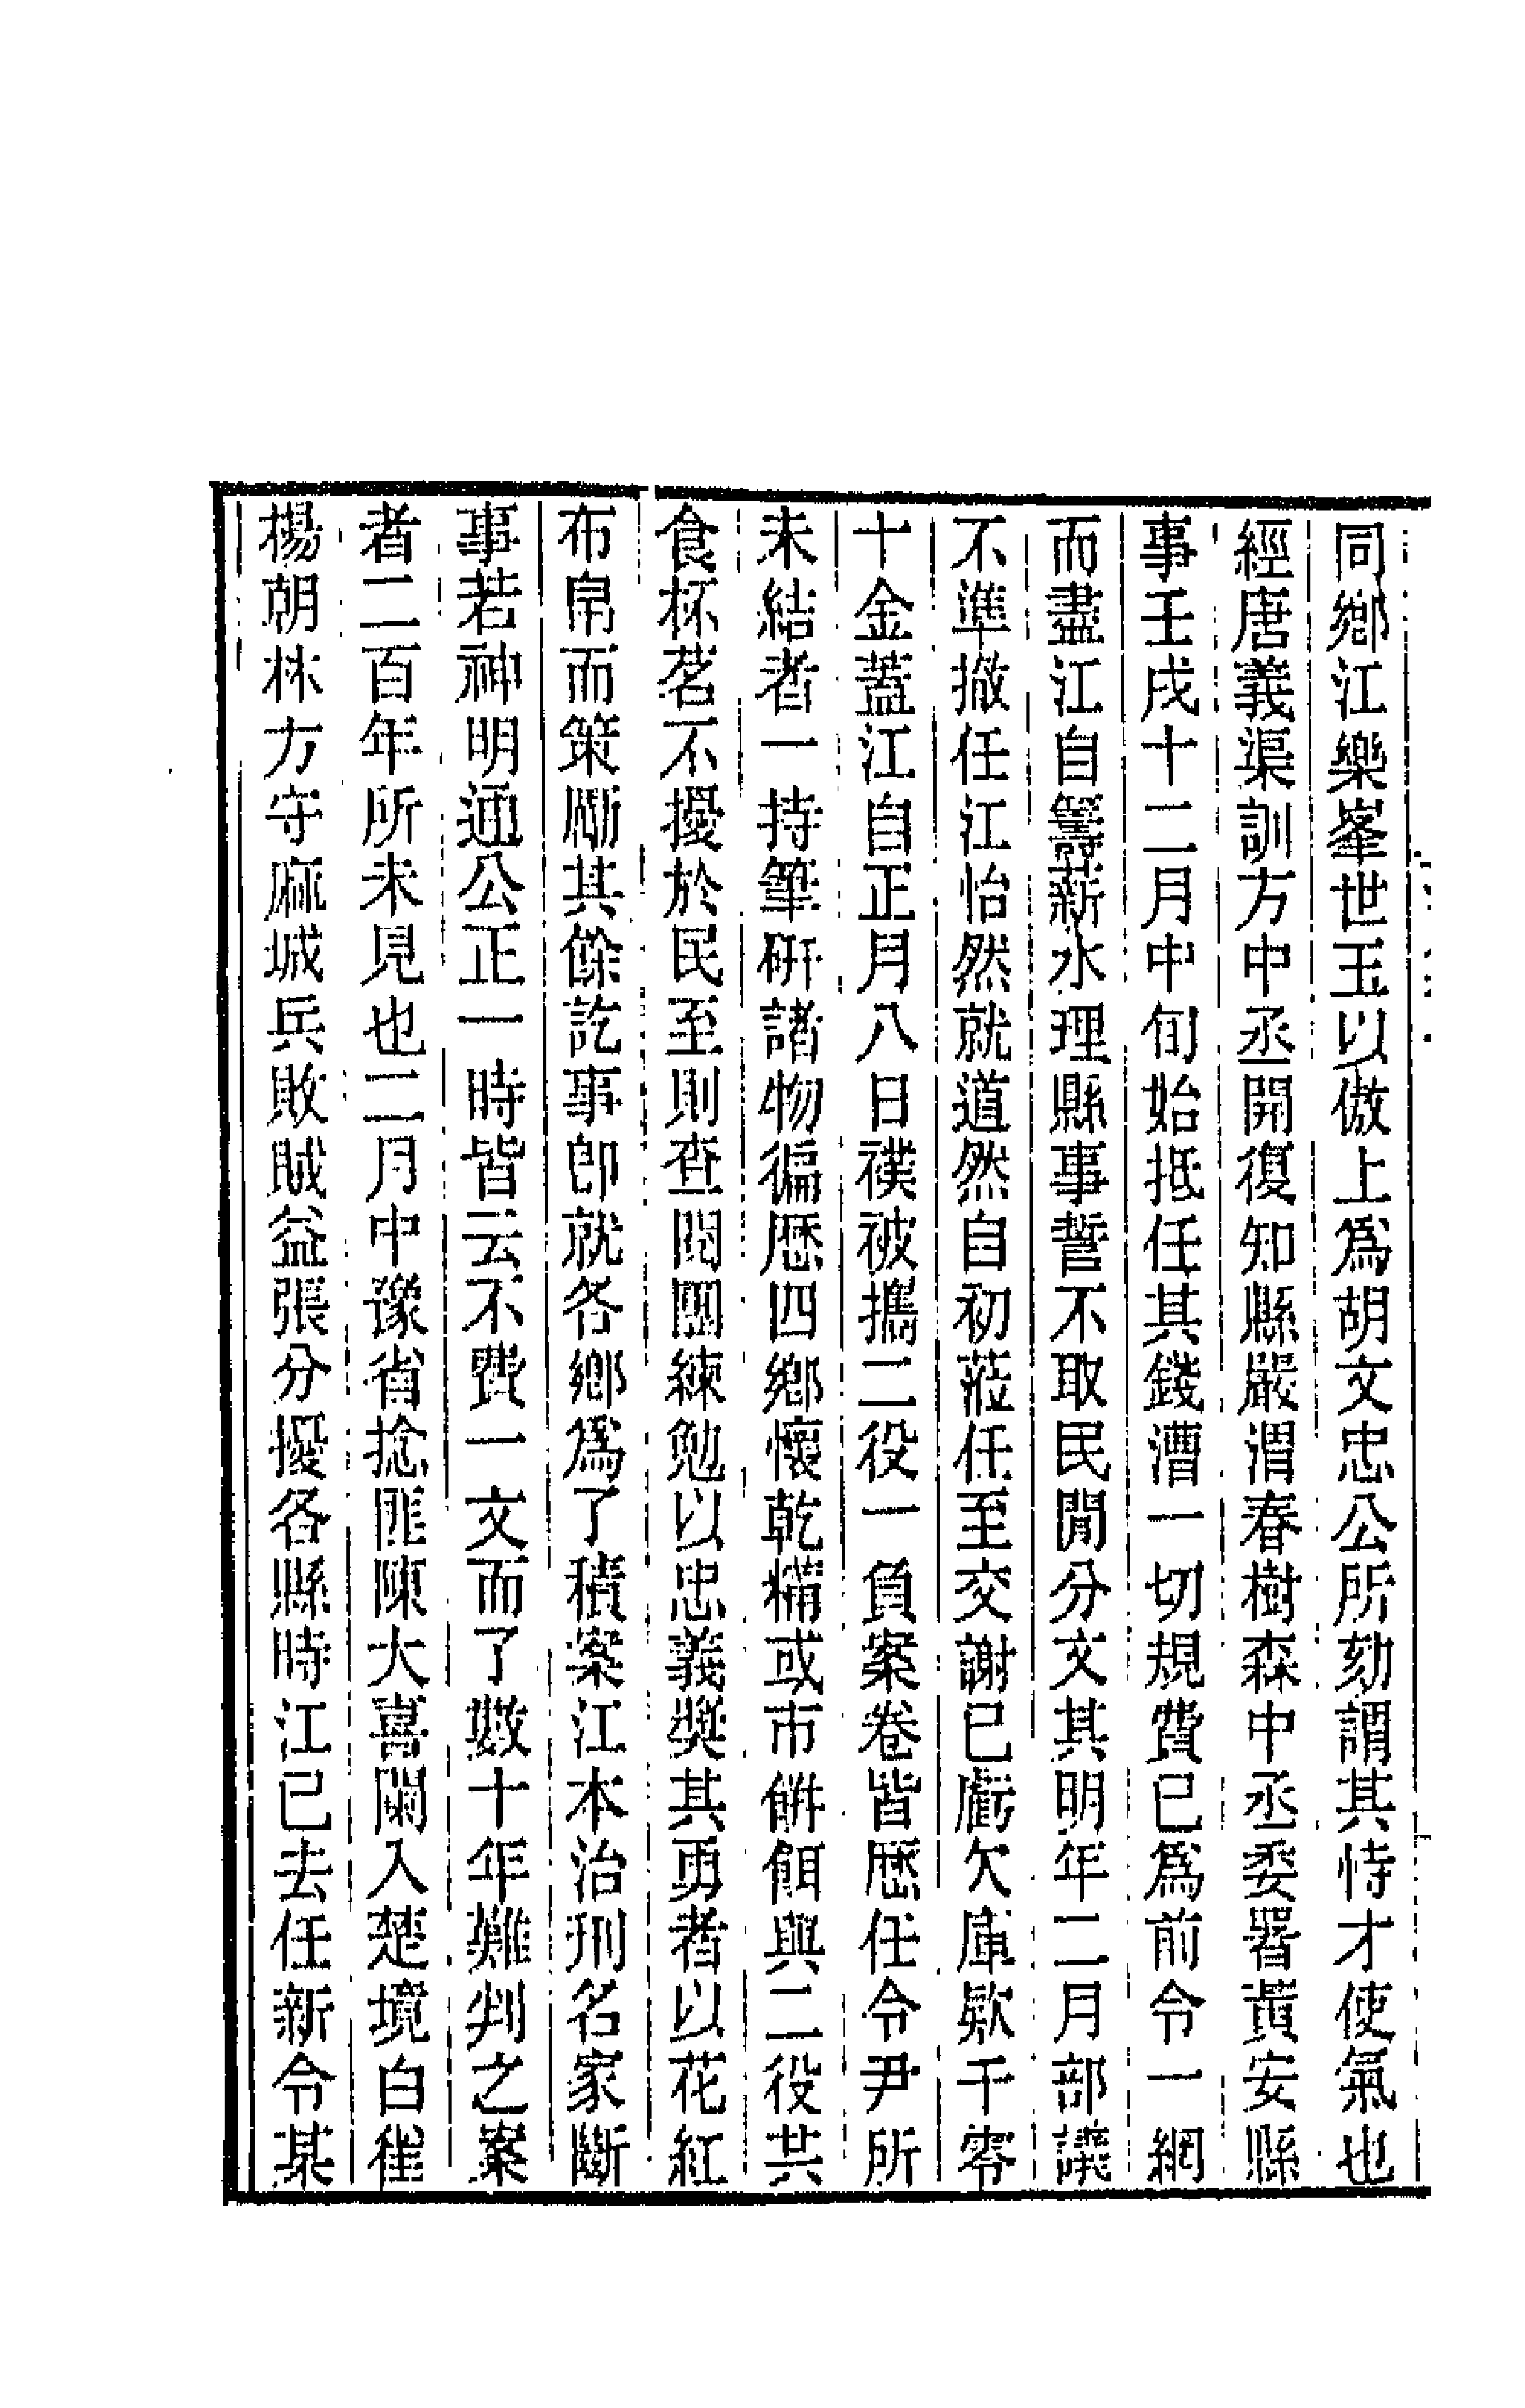 同鄉江樂峯世玉以傲上爲胡文忠公所劾謂其恃才使氣也
經唐義渠訓方中丞開復知縣嚴渭春樹森中丞委署黃安縣
事壬戌十二月中旬始抵任其錢漕一切規費已爲前令一網
而盡江自籌薪水理縣事誓不取民閒分文其明年二月部議
不準撤任江怡然就道然自初蒞任至交謝已虧欠庫欵千零
十金蓋江自正月八日襆被攜二役一負案卷皆歷任令尹所
未結者一持筆硏諸物徧歷四鄉懷乾糒或市餠餌與二役共
食杯茗不擾於民至則查閱團練勉以忠義獎其勇者以花紅
布帛而策勵其餘訖事卽就各鄉爲了積案江本治刑名家斷
事若神明通公正一時皆云不費一文而了數十年難判之案
者二百年所未見也二月中豫省捻匪陳大喜闌入楚境白崔
楊朝林方守麻城兵敗賊益張分擾各縣時江已去任新令某